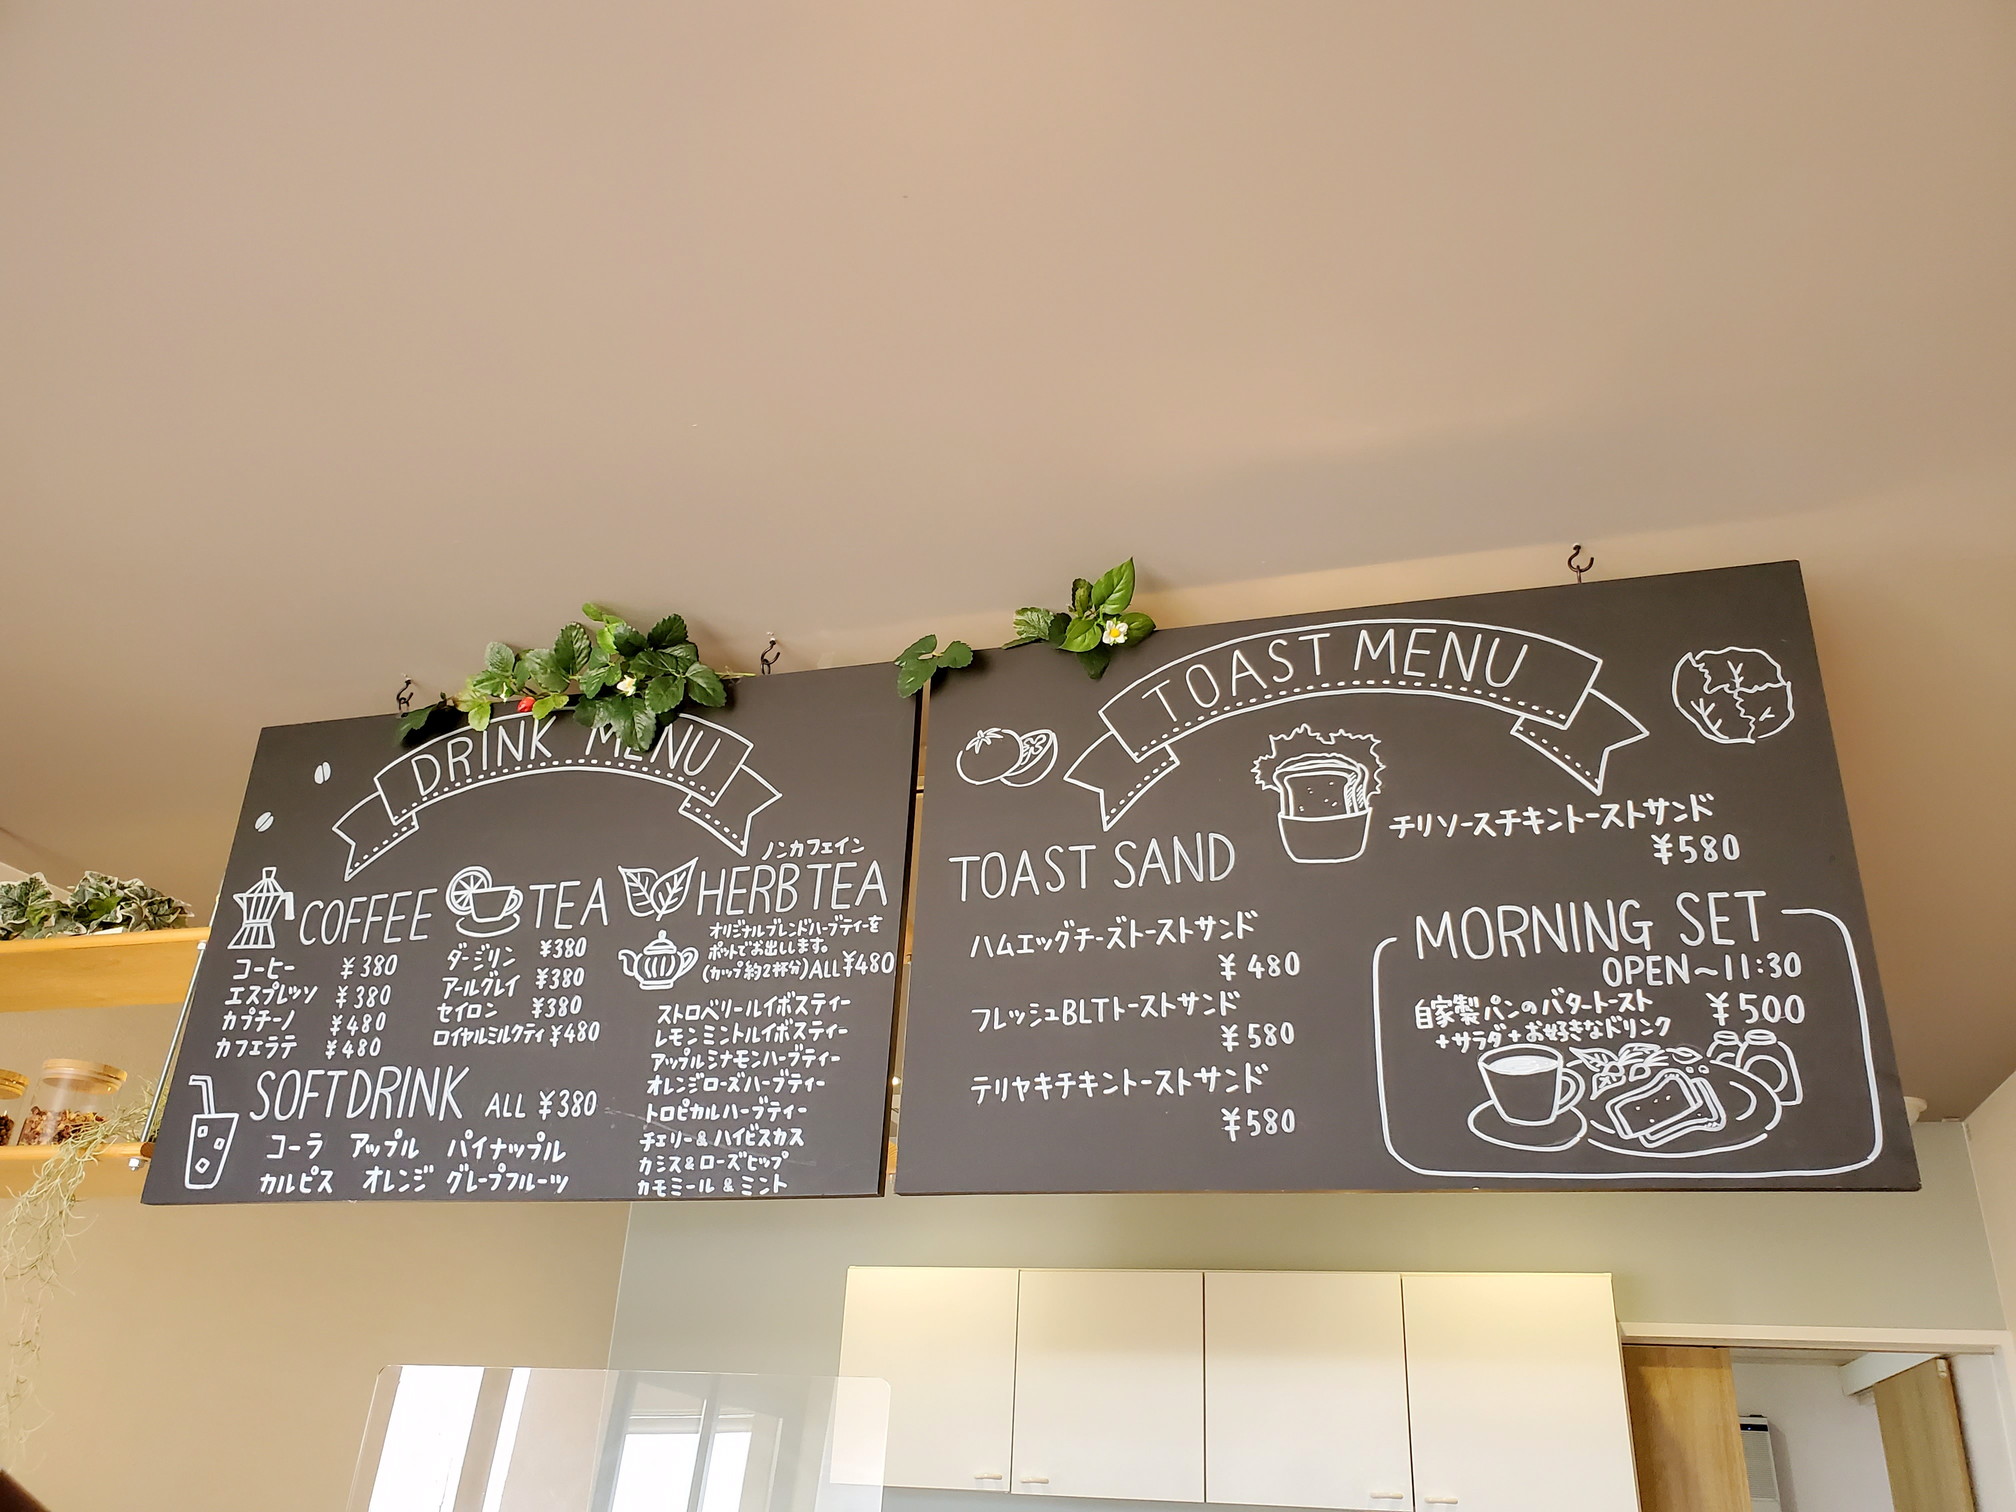 DRINK MENU
COFFEE
コーヒー ¥380
エスプレッソ ¥380
カプチーノ ¥480
カフェラテ ¥480
TEA
ダージリン ¥380
アールグレイ ¥380
セイロン ¥380
ロイヤルミルクティ ¥480
SOFTDRINK ALL ¥380
コーラ アップル パイナップル
カルピス オレンジ グレープフルーツ
ノンカフェイン
HERBTEA
オリジナルブレンドハーブティーを
ポットでお出しします。
(カップ約2杯分)ALL¥480
ストロベリールイボスティー
レモンミントルイボスティー
アップルシナモンハーブティー
オレンジローズハーブティー
トロピカルハーブティー
チェリー&ハイビスカス
カシス&ローズヒップ
カモミール&ミント
TOAST MENU
TOAST SAND
ハムエッグチーズトーストサンド
¥480
フレッシュBLTトーストサンド
¥580
テリヤキチキントーストサンド
¥580
チリソースチキントーストサンド
¥580
MORNING SET
OPEN〜11:30
自家製パンのバタートースト ¥500
+サラダ+お好きなドリンク